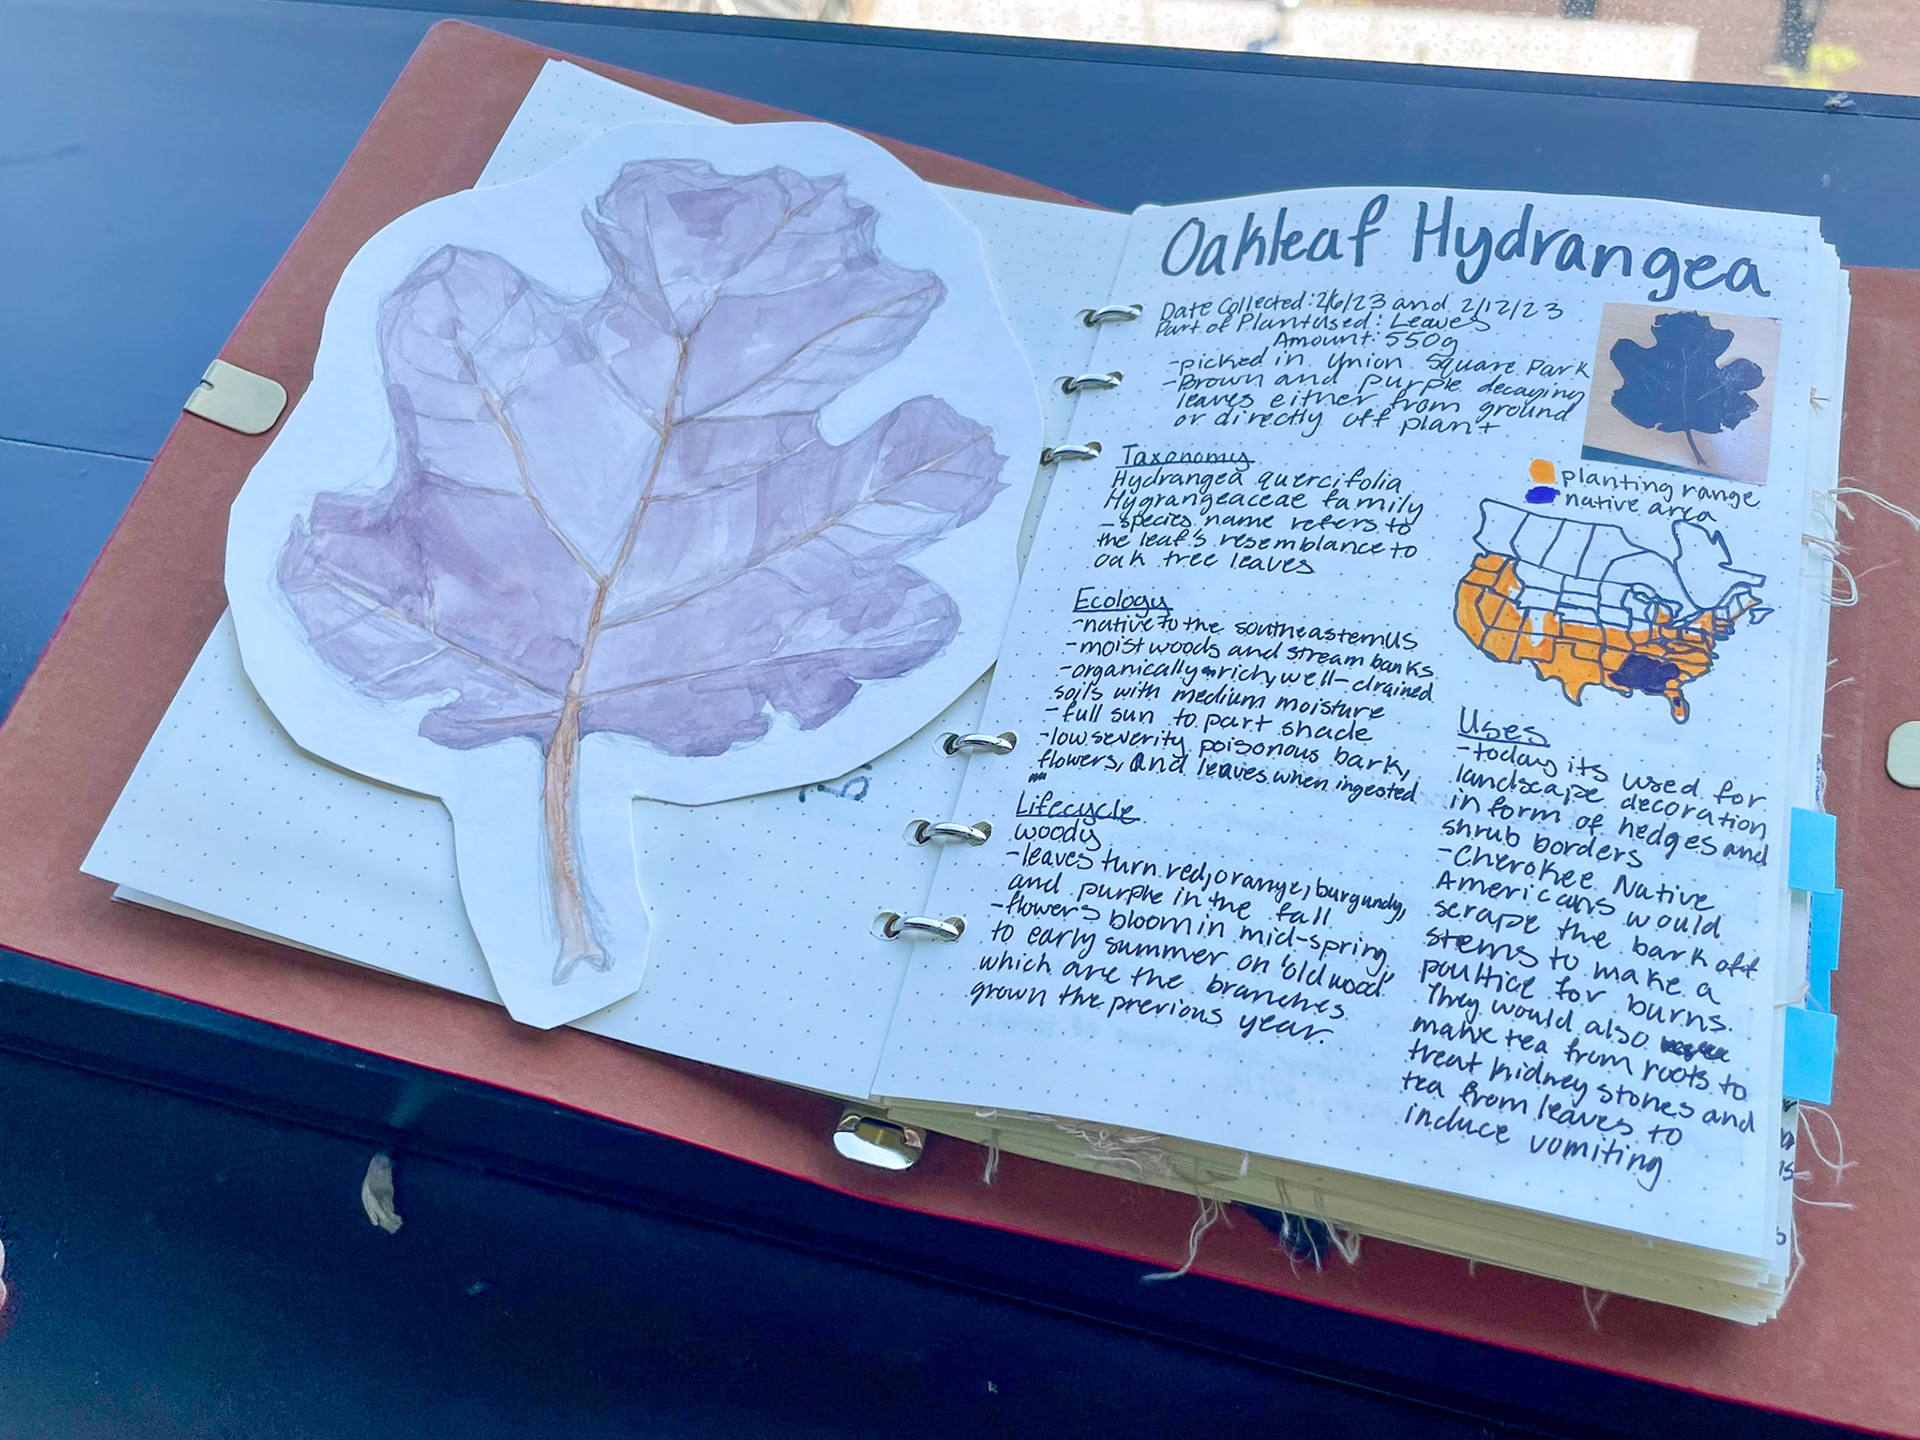 Oakleaf Hydrangea
Date Collected: 2/6/23 and 2/12/23
Part of Plant Used: Leaves
Amount: 550g
-picked in Union Square Park
-Brown and purple decaying
leaves either from ground
or directly off plant
Taxonomy
Hydrangea quercifolia
Hygrangeaceae family
-species name refers to
the leaf's resemblance to
oak tree leaves
Ecology
-native to the southeastern US
-moist woods and stream banks
-organically rich, well-drained
soils with medium moisture
-full sun to part shade
-low severity poisonous bark,
flowers, and leaves when ingested
Lifecycle
woody
-leaves turn red, orange, burgundy,
and purple in the fall
-flowers bloom in mid-spring
to early summer on 'old wood'
which are the branches
grown the previous year.
planting range
native area
Uses
-today its used for
landscape decoration
in form of hedges and
shrub borders
-Cherokee Native
Americans would
scrape the bark off
stems to make a
poultice for burns.
They would also
make tea from roots to
treat kidney stones and
tea from leaves to
incluce vomiting